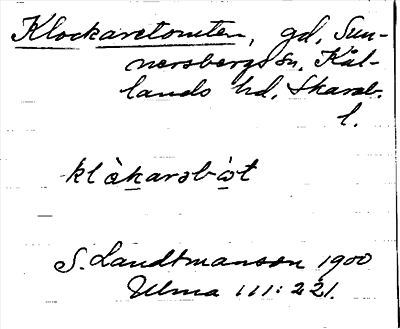 Klockaretomten, gd, Sun-
nersbergs sn, Kål-
lands hd, Skarab.
l.
klòkarsbòt
S. Landtmanson 1900
Ulma 111:221.